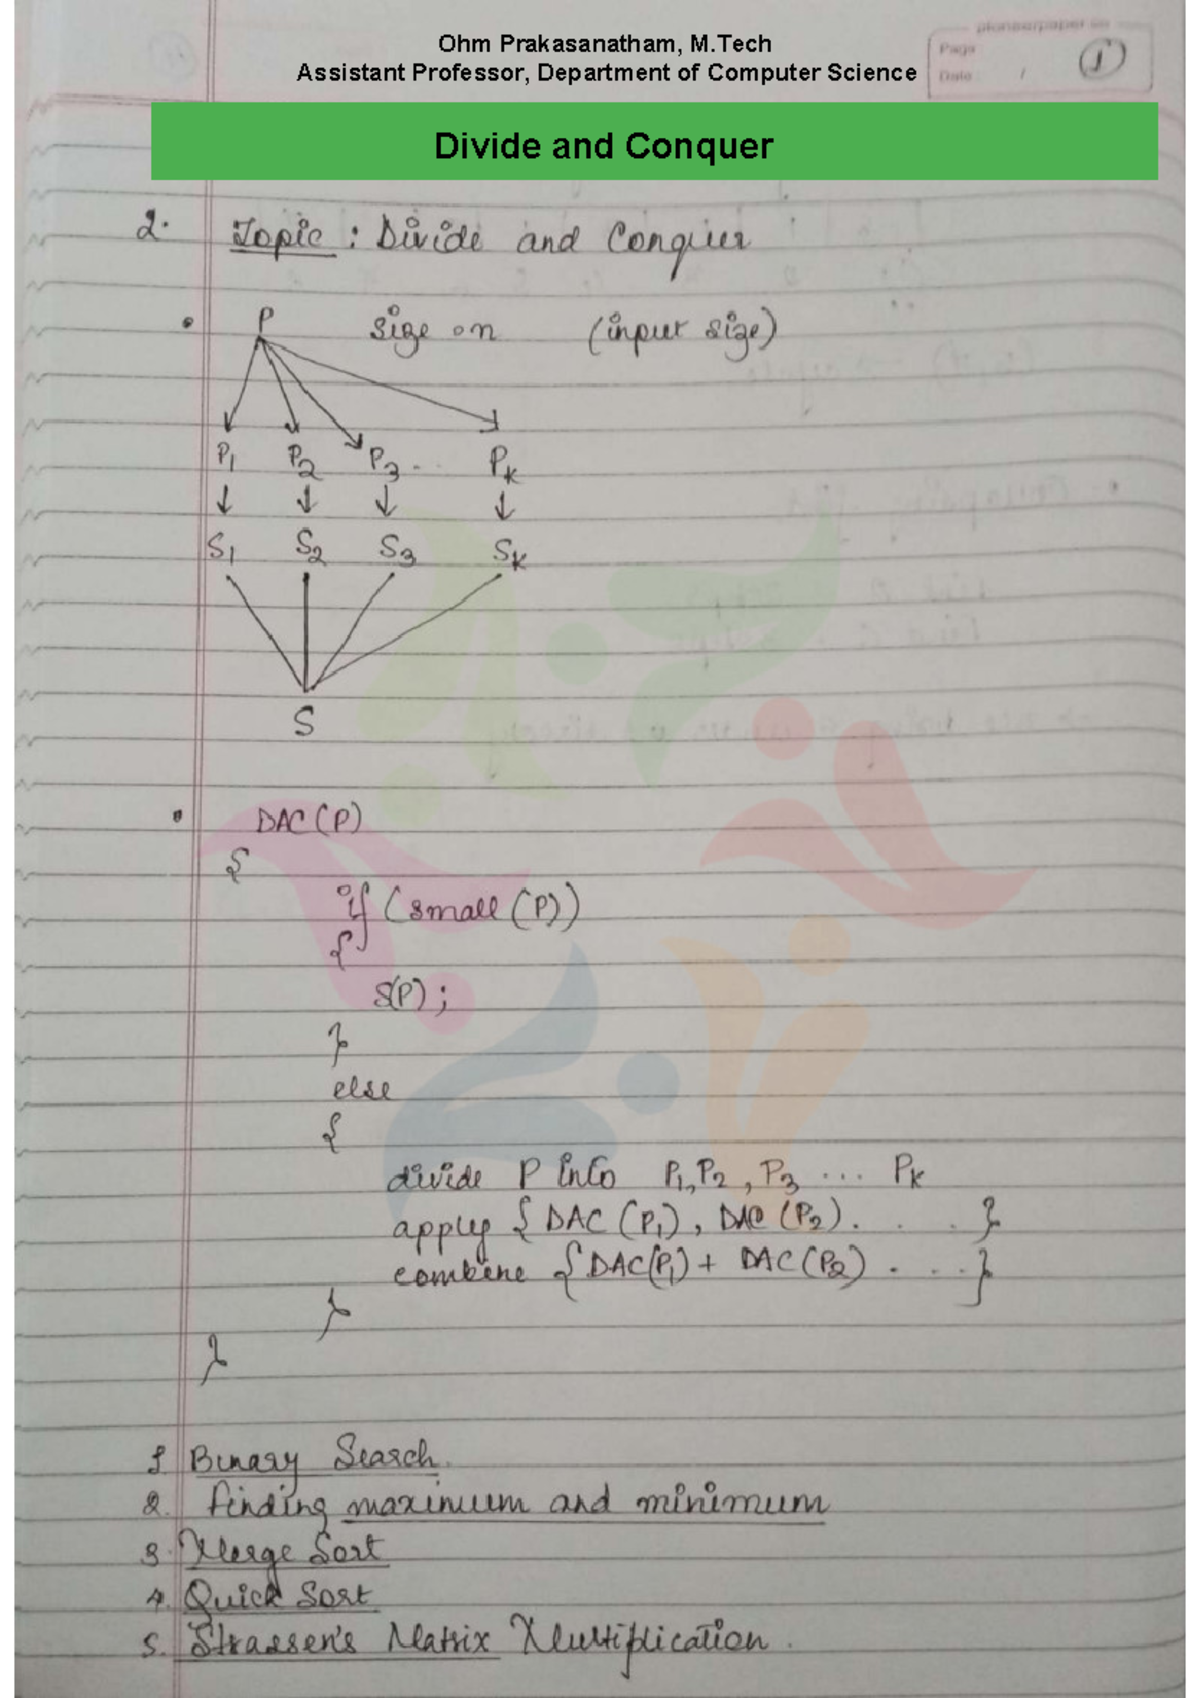 Ohm Prakasanatham, M.Tech
Assistant Professor, Department of Computer Science
pioneerpaper
Page
Date /
1
Divide and Conquer
2. Topic : Divide and Conquer
• P size on (input size)
P1 P2 P3 .. Pk
S1 S2 S3 Sk
S
• DAC (P)
{
if (small (P))
{
S(P) ;
}
else
{
divide P into P1, P2 , P3 ... Pk
apply { DAC (P1) , DAC (P2) . . . }
combine { DAC(P1) + DAC (P2) . . . }
}
}
1 Binary Search.
2. finding maximum and minimum
3. Merge Sort
4. Quick Sort
5. Strassen's Matrix Multiplication .